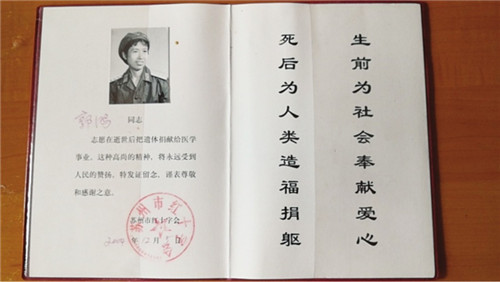 同志
志愿在逝世后把遗体捐献给医学
事业。这种高尚的精神，将永远受到
人民的赞扬。特发证留念。谨表尊敬
和感谢之意。
苏州市红十字会
苏州市红十字会
12月
生前为社会奉献爱心
死后为人类造福捐躯